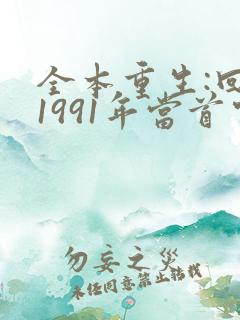 全本重生:回
1991年當首
勿妄之災
未经同意禁止转载